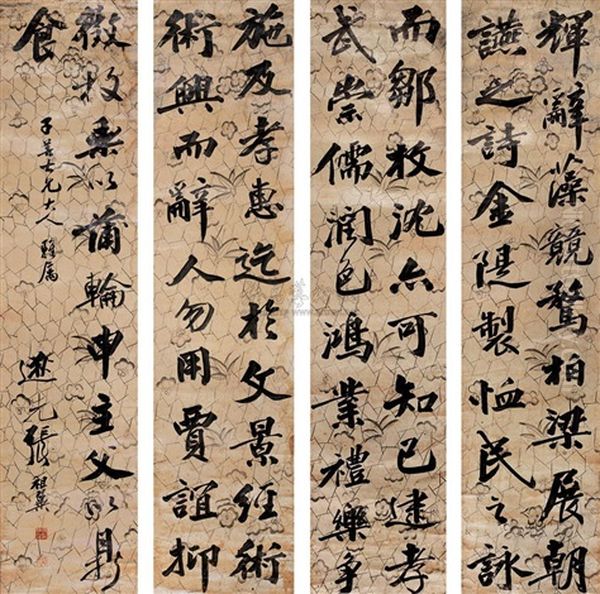 輝辭藻競騖柏梁展朝
讌之詩金隄製恤民之詠
而鄒枚沈亦可知已逮孝
武崇儒潤色鴻業禮樂爭
施及孝惠迄於文景經術
術興而辭人勿用賈誼抑
徵枚乘以蒲輪申主父以鼎
食
子 兄大人 雅屬
逖先張祖翼